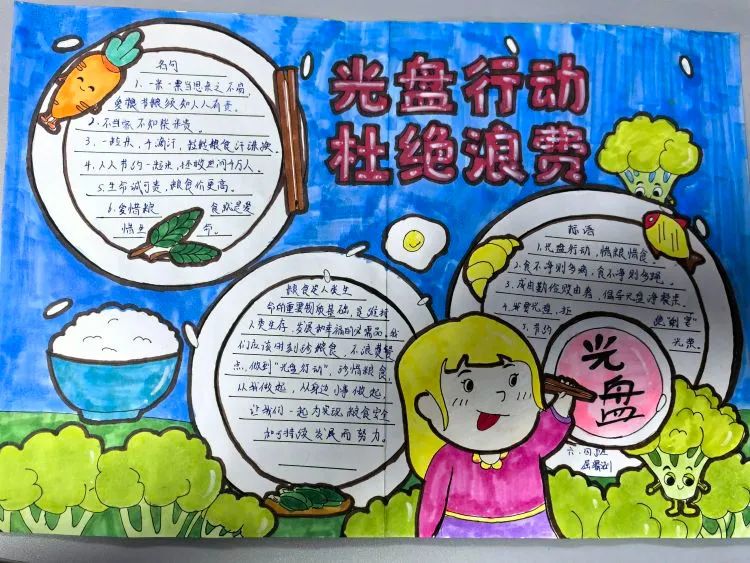 光盘行动
杜绝浪费
名句
1.一米一粟当思来之不易,
爱粮节粮须知人人有责。
2.不当家不知柴米贵。
3.一粒米,千滴汗,粒粒粮食汗珠换。
4.人人节约一粒米,拯救世间千万人。
5.生命诚可贵,粮食价更高。
6.爱惜粮 食就是爱
惜生 命。
粮食是人类生
命的重要物质基础,是维持
人类生存、发展和幸福的必需品,我
们应该时刻珍粮食,不浪费餐
点,做到"光盘行动",珍惜粮食,
从我做起,从身边小事做起,
让我们一起为实现粮食安全
和可持续发展而努力。
标语
1.光盘行动,惜粮惜食。
2.食不净则多病,食不净则多
3.成由勤俭败由奢,倡导光盘净餐桌。
4.
5.节约
光荣。
光盘
六.